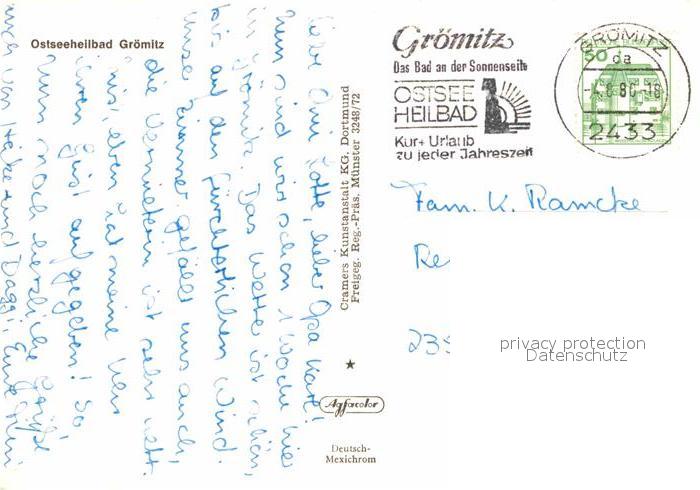 Ostseeheilbad Grömitz
Liebe Omi Lotte, lieber Opa Karl!
Nun sind wir schon 1 Woche hier
in Grömitz. Das Wetter ist schön,
bis auf den fürchterlichen Wind.
Unser Zimmer gefällt uns auch,
die Vermieterin ist sehr nett.
eben hat meine
ihren Geist aufgegeben! So
nun noch herzliche Grüße
auch von Heike und Daggi, Eure
Cramers Kunstanstalt KG. Dortmund
Freigeg. Reg.-Präs. Münster 3248/72
Agfacolor
Deutsch-
Mexichrom
Grömitz
Das Bad an der Sonnenseite
OSTSEE
HEILBAD
Kur + Urlaub
zu jeder Jahreszeit
GRÖMITZ
da
-4.8.80-18
2433
50
Fam. K. Ramcke
Re
23
privacy protection
Datenschutz